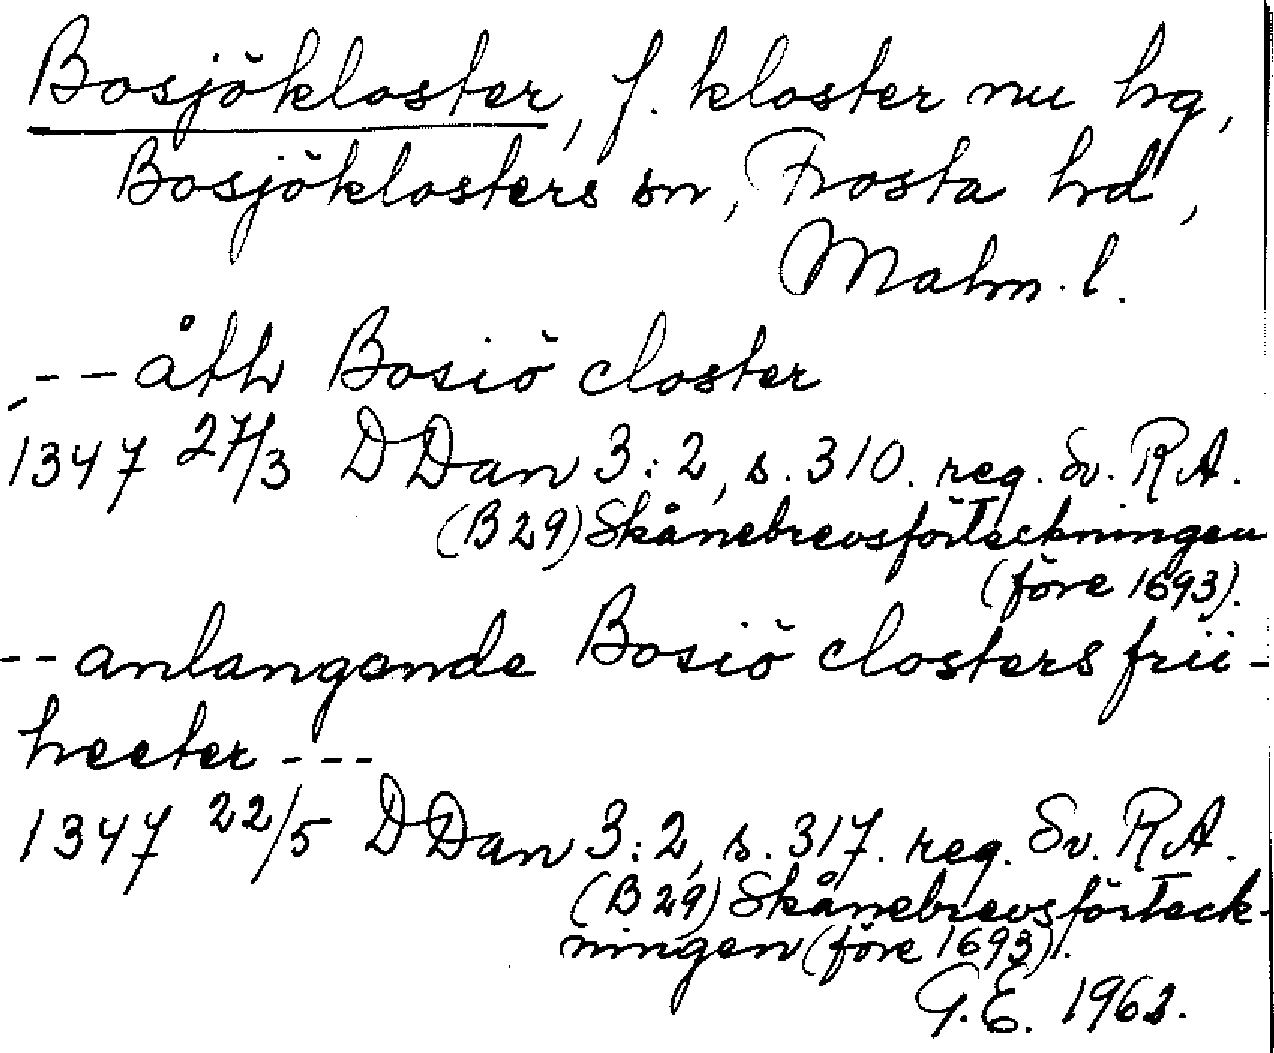 Bosjökloster, f. kloster nu hg,
Bosjöklosters sn, Frosta hd,
Malm. l.
-- åth Bosiö closter
1347 27/3 DDan 3:2, s. 310. reg. Sv. RA.
(B 29) Skånebrevsförteckningen
(före 1693).
-- anlangende Bosiö closters frii-
heeter ---
1347 22/5 DDan 3:2, s. 317. reg. Sv. RA.
(B 29) Skånebrevsförteck-
ningen (före 1693).
G.E. 1962.